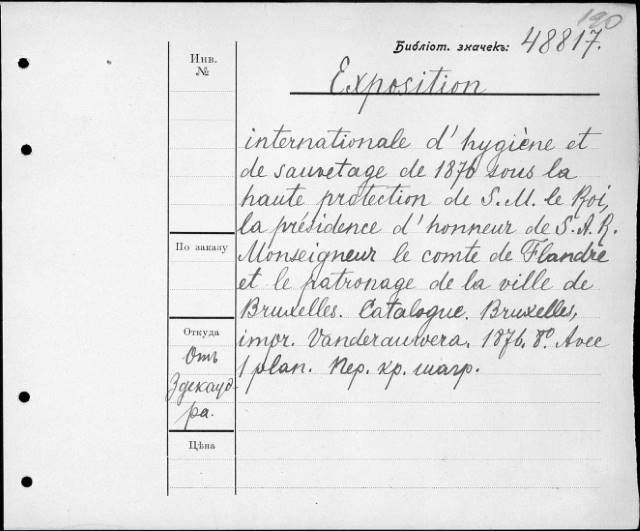 190
Библіот. значекъ: 48817.
Инв.
№
Exposition
internationale d'hygiène et
de sauvetage de 1876 sous la
haute protection de S.M. le Roi,
la présidence d'honneur de S.A.R.
По заказу
Monseigneur le comte de Flandre
et le patronage de la ville de
Bruxelles. Catalogue. Bruxelles,
Откуда
impr. Vanderauwera. 1876. 8º. Avec
1 plan. Пер. кр. шагр.
Отъ
Здекауэ-
ра.
Цѣна